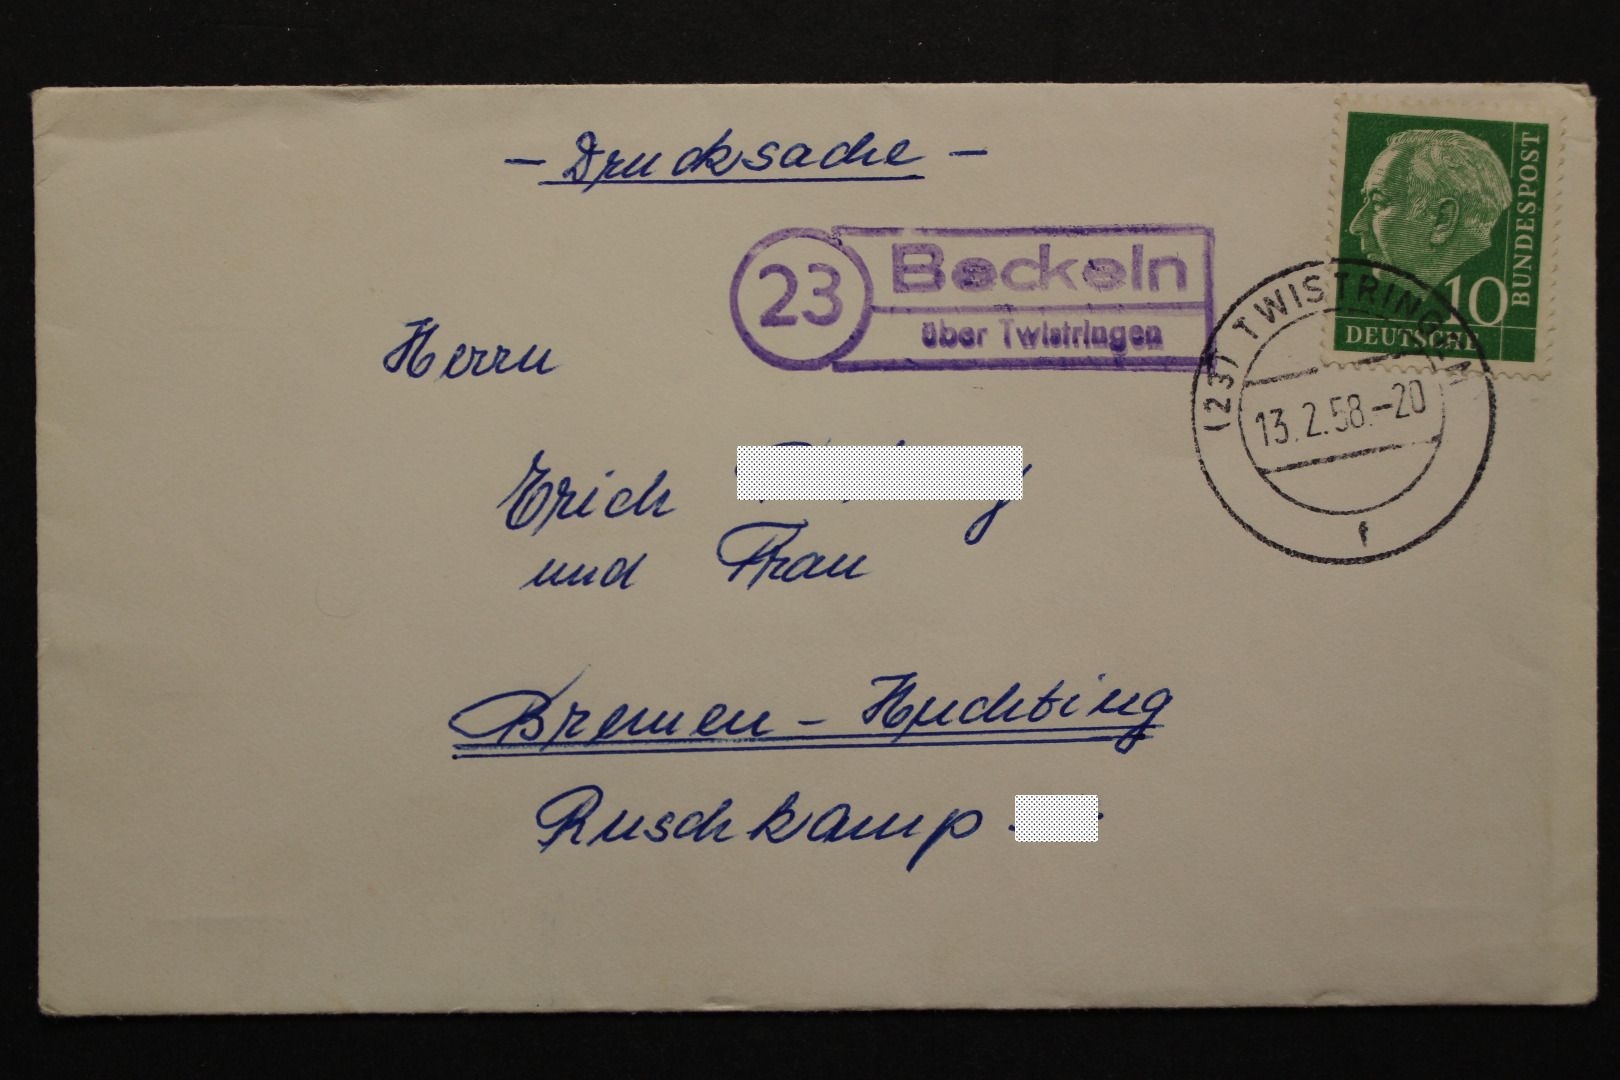 – Drucksache –
DEUTSCHE
BUNDESPOST
10
23
Beckeln
über Twistringen
(23) TWISTRINGEN
13.2.58.–20
f
Herrn
Erich
und Frau
Bremen – Huchting
Ruschkamp